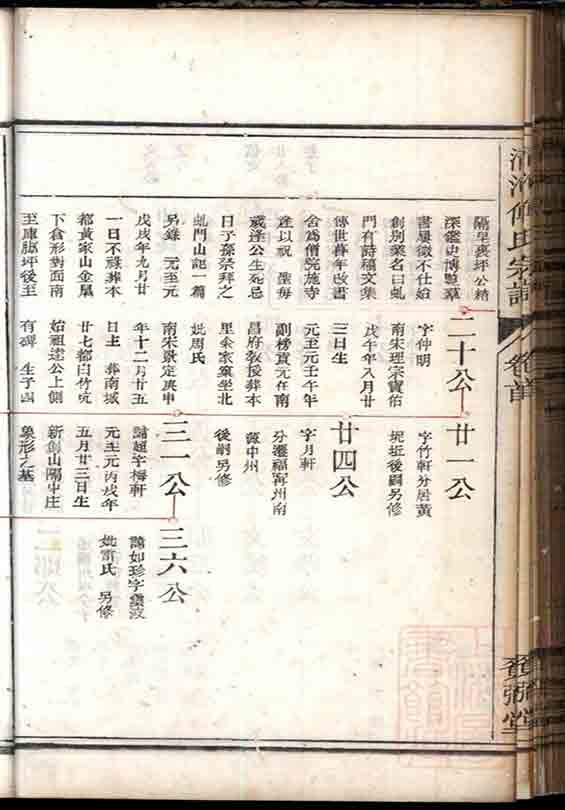 宗譜
卷首
隔皇裘坪公精
深鑑史博覽羣
書屢徵不仕始
創別業名曰虬
門有詩稿文集
傳世暮年改書
舍爲僧院施寺
產以祝 聖每
歲逢公生死忌
日子孫祭拜之
虬門山記一篇
另錄 元至元
戊戌年九月廿
一日不祿葬本
都黃家山金凰
下倉形對面南
至庫脚坪後至
二十公
字仲明
南宋理宗寶佑
戊午年八月廿
三日生
元至元壬午年
副榜貢元在南
昌府教授葬本
里余家窠坐北
妣周氏
南宋景定庚申
年十二月廿五
日生 葬南城
廿七都白竹坑
始祖逵公上側
有碑 生子四
廿一公
字竹軒分居黃
坭坵後嗣另修
廿四公
字月軒
分遷福寧州南
薄中州
後嗣另修
三一公
諱超字梅軒
元至元丙戌年
五月廿三日生
新創山隔中庄
象形之墓
三六公
諱如珍字
妣雷氏 另修
堂